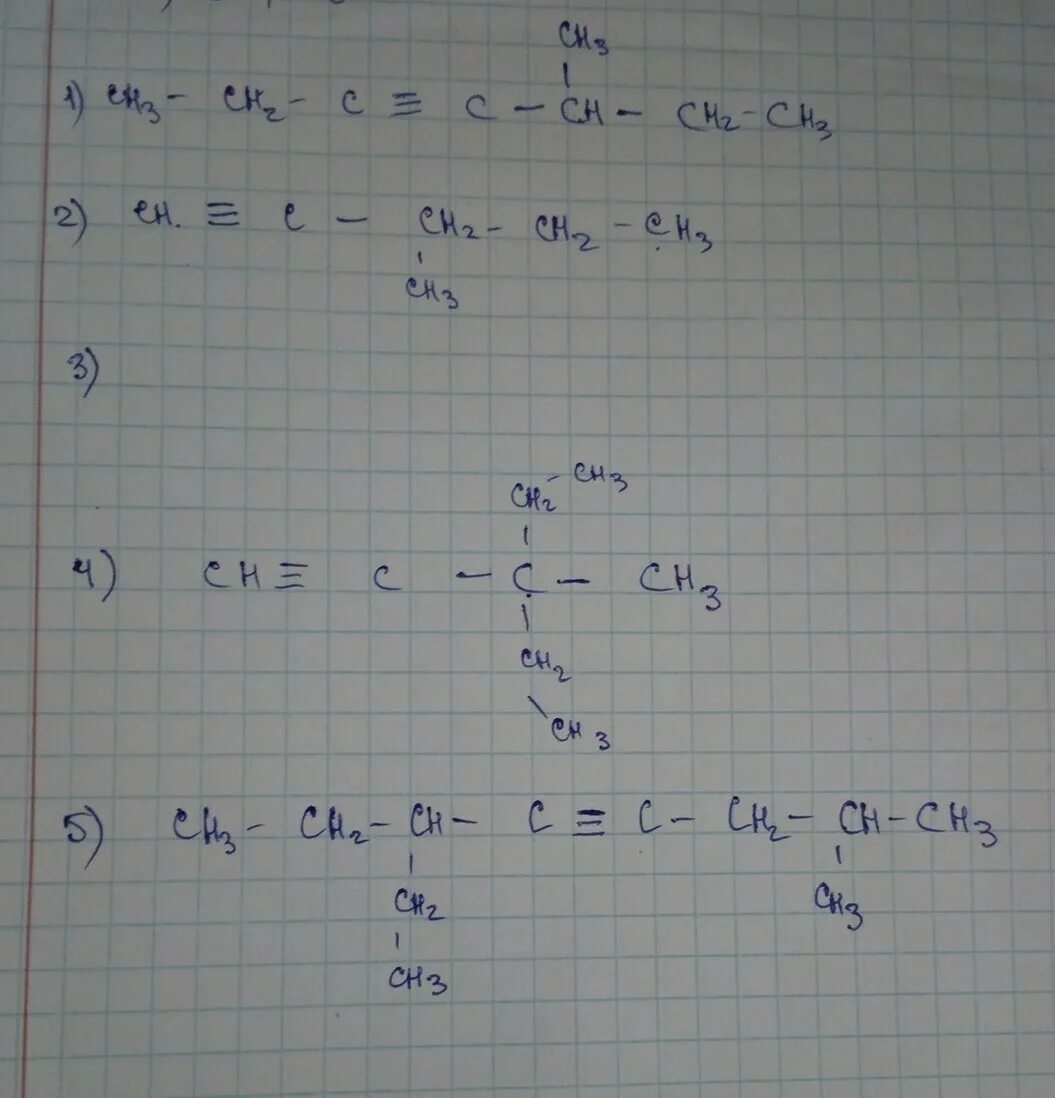 CH3
1) CH3 - CH2 - C ≡ C - CH - CH2 - CH3
2) CH ≡ C - CH2 - CH2 - CH3
CH3
3)
CH2 - CH3
4) CH ≡ C - C - CH3
CH2
CH3
5) CH3 - CH2 - CH - C ≡ C - CH2 - CH - CH3
CH2 CH3
CH3